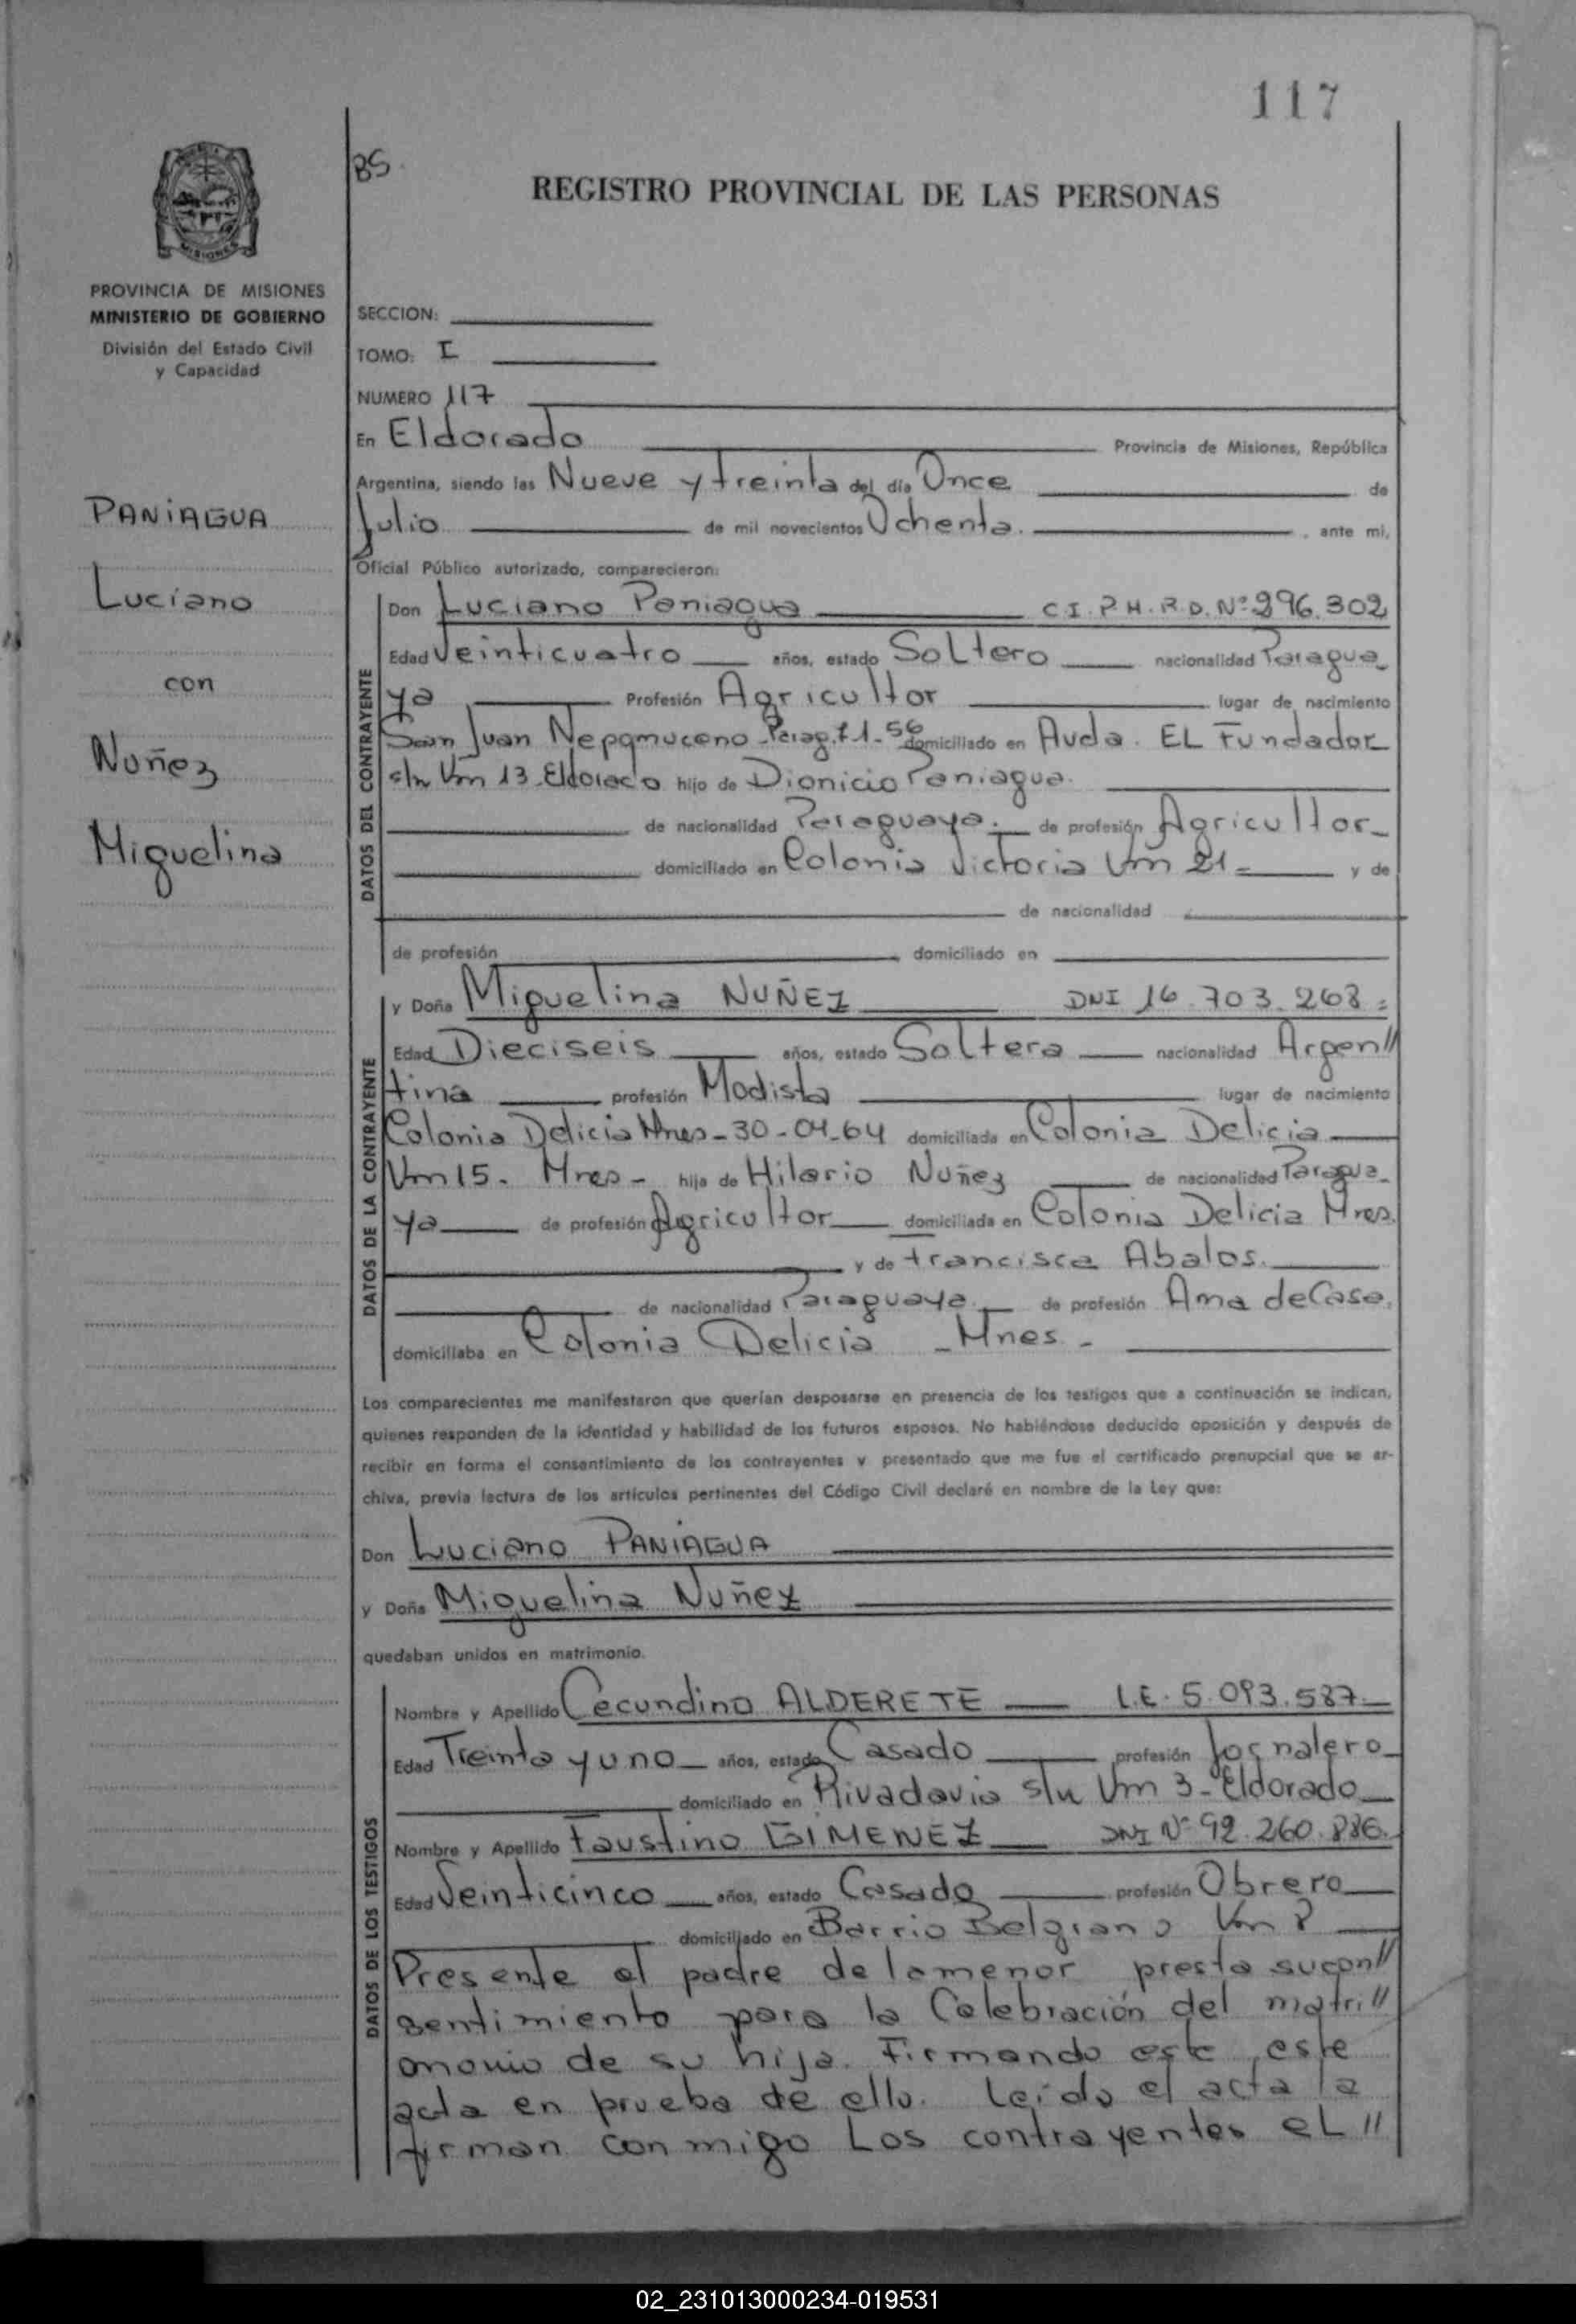 117
BS.
REGISTRO PROVINCIAL DE LAS PERSONAS
MISIONES
PROVINCIA DE MISIONES
MINISTERIO DE GOBIERNO
División del Estado Civil
y Capacidad
SECCION:
TOMO: I
NUMERO 117
En Eldorado Provincia de Misiones, República
Argentina, siendo las Nueve y treinta del día Once de
Julio de mil novecientos Ochenta. , ante mi,
Oficial Público autorizado, comparecieron:
PANIAGUA
Luciano
con
Nuñez
Miguelina
DATOS DEL CONTRAYENTE
Don Luciano Paniagua C.I.P.H.R.D. Nº 296.302
Edad Veinticuatro años, estado Soltero nacionalidad Paragua_
ya Profesión Agricultor lugar de nacimiento
San Juan Nepomuceno - Parag. 7-1-56 domiciliado en Avda. EL Fundador
s/n Km 13 - Eldorado hijo de Dionicio Paniagua.
de nacionalidad Paraguaya. de profesión Agricultor_
domiciliado en Colonia Victoria Km 21 - y de
de nacionalidad
de profesión domiciliado en
DATOS DE LA CONTRAYENTE
y Doña Miguelina NUÑEZ DNI 16.703.268 =
Edad Dieciseis años, estado Soltera nacionalidad Argen//
tina profesión Modista lugar de nacimiento
Colonia Delicia Mnes - 30-04-64 domiciliada en Colonia Delicia
Km 15. Mnes - hija de Hilario Nuñez de nacionalidad Paragua_
ya de profesión Agricultor domiciliada en Colonia Delicia Mnes.
y de Francisca Abalos.
de nacionalidad Paraguaya. de profesión Ama de Casa.
domiciliaba en Colonia Delicia - Mnes -
Los comparecientes me manifestaron que querían desposarse en presencia de los testigos que a continuación se indican,
quienes responden de la identidad y habilidad de los futuros esposos. No habiéndose deducido oposición y después de
recibir en forma el consentimiento de los contrayentes y presentado que me fue el certificado prenupcial que se ar-
chiva, previa lectura de los artículos pertinentes del Código Civil declaré en nombre de la Ley que:
Don Luciano PANIAGUA
y Doña Miguelina Nuñez
quedaban unidos en matrimonio.
DATOS DE LOS TESTIGOS
Nombre y Apellido Cecundino ALDERETE L.E. 5.093.587
Edad Treinta y uno años, estado Casado profesión Jornalero
domiciliado en Rivadavia s/n Km 3 - Eldorado
Nombre y Apellido Faustino GIMENEZ DNI Nº 92.260.886.
Edad Veinticinco años, estado Casado profesión Obrero
domiciliado en Barrio Belgrano Km 8
Presente el padre de la menor presta su con//
sentimiento para la Celebración del matri//
omonio de su hija. Firmando este, este
acta en prueba de ello. Leído el acta la
firman conmigo Los contrayentes eL //
02_231013000234-019531